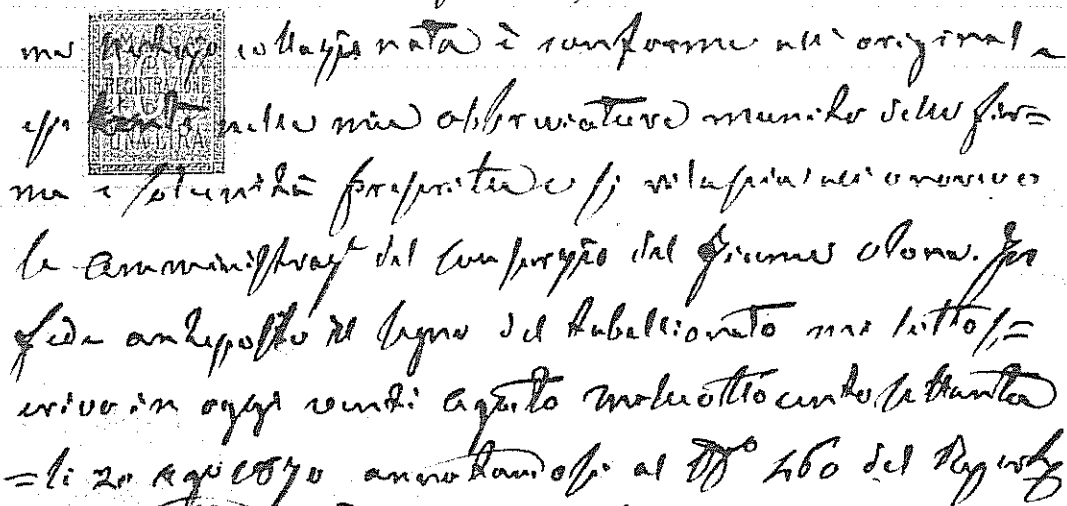 ma collazionata è conforme all'originale
nella mia abbreviatura munito della fir=
ma e solennità prescritta e si rilascia all'onorevo
le Amministraz.e del Consorzio del Fiume Olona. In
fede anteposto il segno del tabellionato mi sottos=
crivo in oggi venti Agosto milleottocento settanta
=li 20 Ag.o 1870 annotandosi al N.o 460 del
REGISTRAZIONE
UNA LIRA